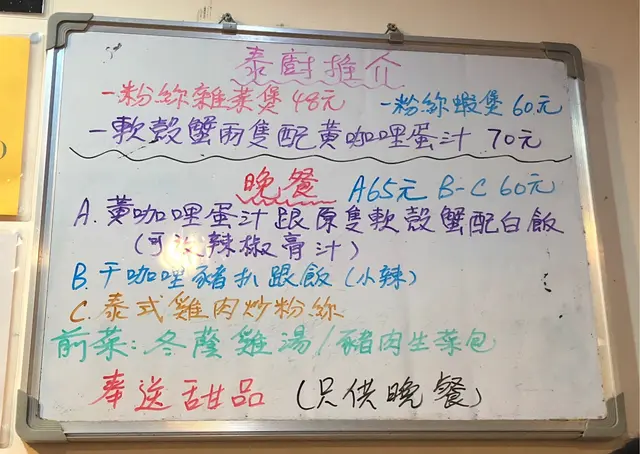 泰廚推介
-粉絲雜菜煲 48元 -粉絲蝦煲 60元
-軟殼蟹兩隻配黃咖哩蛋汁 70元
晚餐 A65元 B-C 60元
A.黃咖哩蛋汁跟原隻軟殼蟹配白飯
(可 辣椒膏汁)
B.干咖哩豬扒跟飯(小辣)
C.泰式雞肉炒粉絲
前菜:冬蔭雞湯/豬肉生菜包
奉送甜品 (只供晚餐)